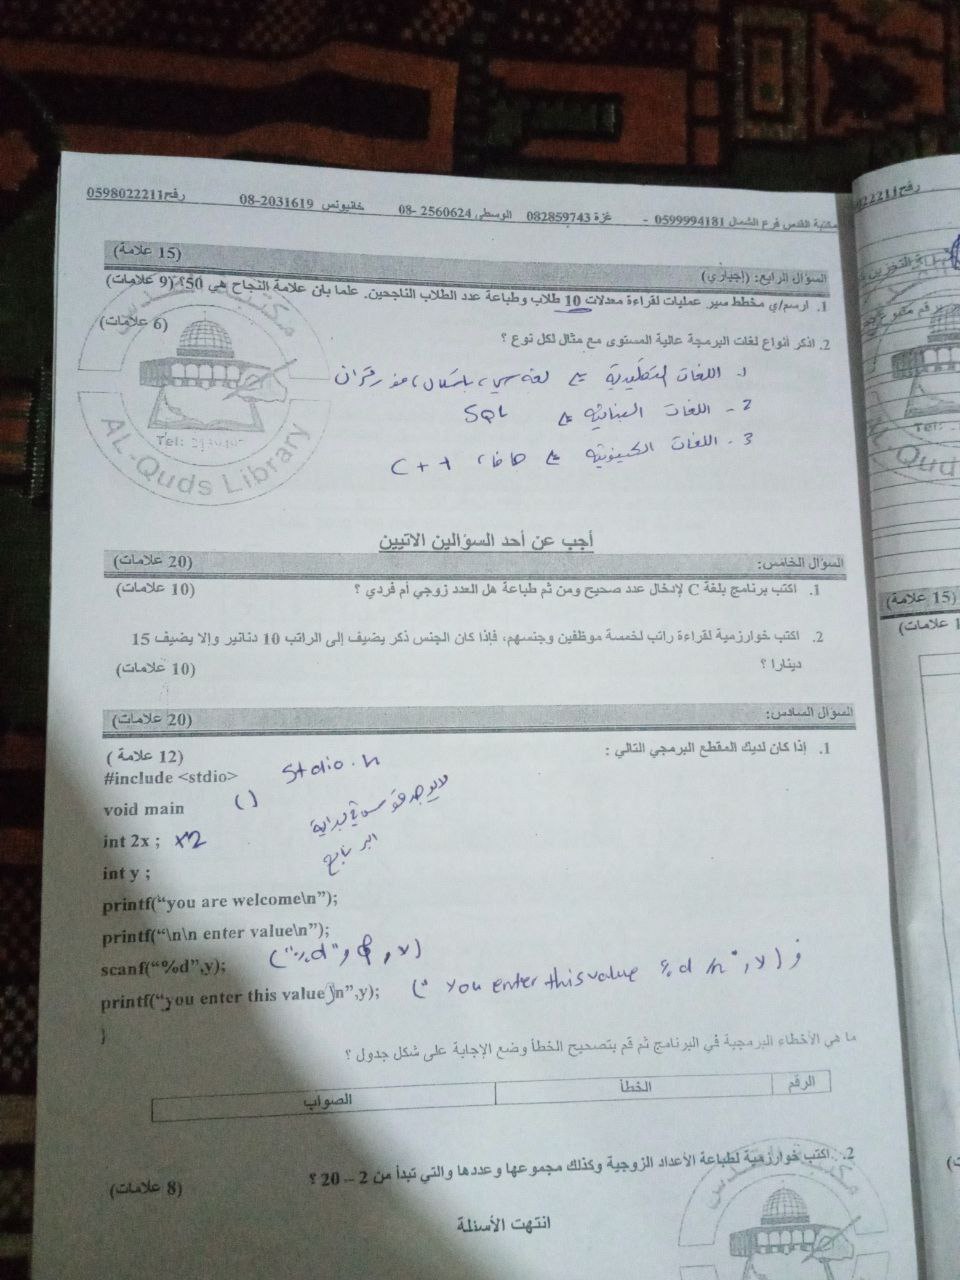 مكتبة القدس فرع الشمال 0599994181 - غزة 082859743 الوسطى 2560624 -08 خانيونس 2031619-08 رفح 0598022211
السؤال الرابع: (إجباري) (15 علامة)
1. ارسم/ي مخطط سير عمليات لقراءة معدلات 10 طلاب وطباعة عدد الطلاب الناجحين. علما بان علامة النجاح هي 50؟ (9 علامات)
2. اذكر أنواع لغات البرمجة عالية المستوى مع مثال لكل نوع ؟ (6 علامات)
1. اللغات لغة سي، باسكال، فورتران
2- اللغات البيانية SQL
3. اللغات الكينونية جافا، C++
AL-Quds Library
أجب عن أحد السؤالين الاتيين
السؤال الخامس: (20 علامات)
1. اكتب برنامج بلغة C لإدخال عدد صحيح ومن ثم طباعة هل العدد زوجي أم فردي ؟ (10 علامات)
2. اكتب خوارزمية لقراءة راتب لخمسة موظفين وجنسهم، فإذا كان الجنس ذكر يضيف إلى الراتب 10 دنانير وإلا يضيف 15
دينارا ؟ (10 علامات)
السؤال السادس: (20 علامات)
1. إذا كان لديك المقطع البرمجي التالي : (12 علامة )
#include <stdio> stdio.h
void main ()
لا يوجد قوس في بداية
البرنامج
int 2x ; x2
int y ;
printf("you are welcome\n");
printf("\n\n enter value\n");
scanf("%d",y); ("%d", &, y)
printf("you enter this value\n",y); (" you enter this value %d /n", y) ;
}
ما هي الأخطاء البرمجية في البرنامج ثم قم بتصحيح الخطأ وضع الإجابة على شكل جدول ؟
الرقم الخطأ الصواب
2. اكتب خوارزمية لطباعة الأعداد الزوجية وكذلك مجموعها وعددها والتي تبدأ من 2 – 20 ؟ (8 علامات)
انتهت الأسئلة